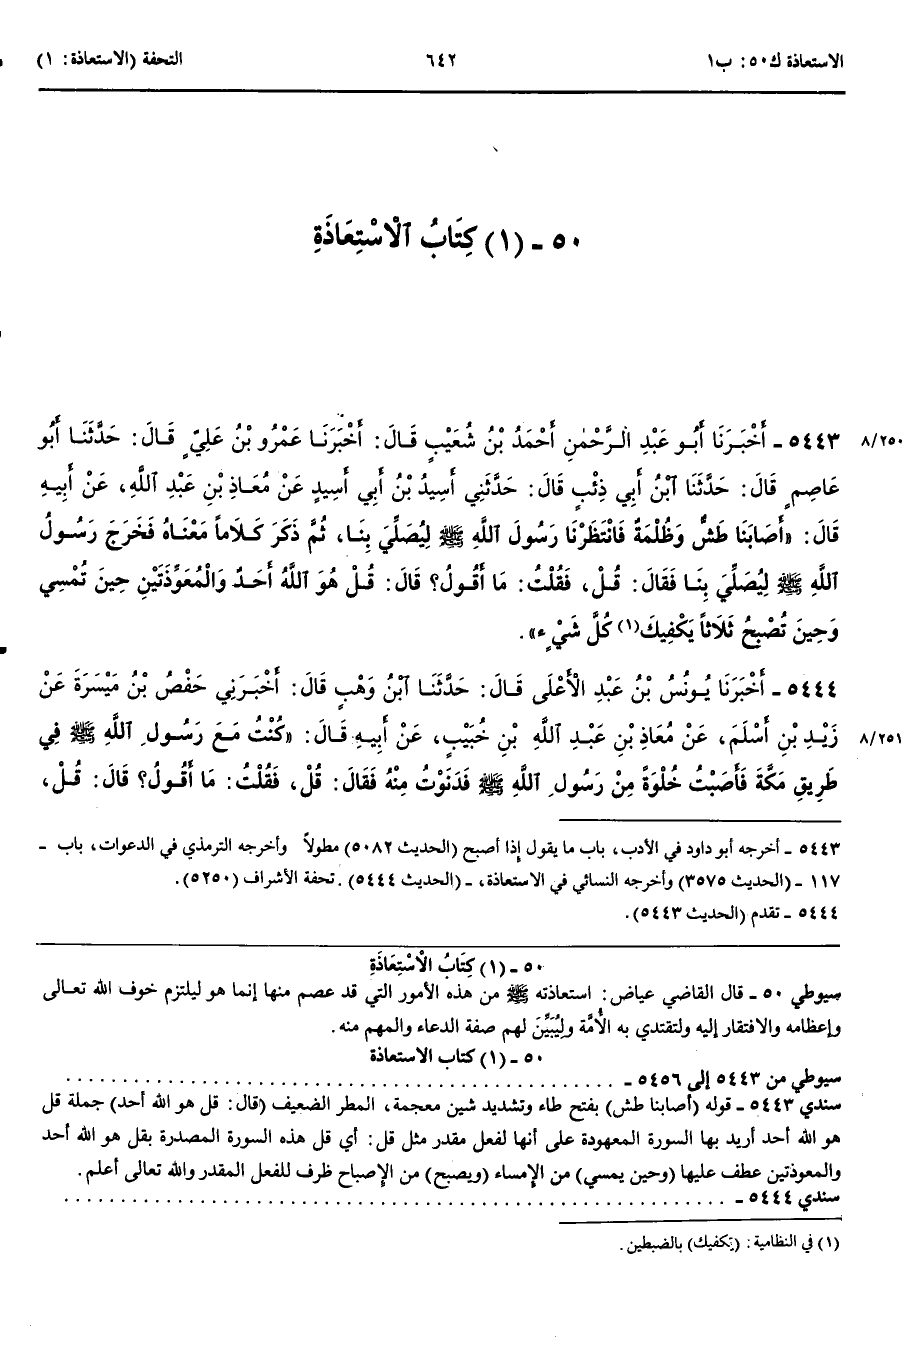 الاستعاذة ك٥٠: ب١ ٦٤٢ التحفة (الاستعاذة: ١)
٥٠ - (١) كِتَابُ ٱلْاسْتِعَاذَةِ
٨/٢٥٠ ٥٤٤٣ - أَخْبَرَنَا أَبُو عَبْدِ الرَّحْمٰنِ أَحْمَدُ بْنُ شُعَيْبٍ قَالَ: أَخْبَرَنَا عَمْرُو بْنُ عَلِيٍّ قَالَ: حَدَّثَنَا أَبُو
عَاصِمٍ قَالَ: حَدَّثَنَا ٱبْنُ أَبِي ذِئْبٍ قَالَ: حَدَّثَنِي أَسِيدُ بْنُ أَبِي أَسِيدٍ عَنْ مُعَاذِ بْنِ عَبْدِ ٱللَّهِ، عَنْ أَبِيهِ
قَالَ: «أَصَابَنَا طَشٌّ وَظُلْمَةٌ فَانْتَظَرْنَا رَسُولَ ٱللَّهِ ﷺ لِيُصَلِّيَ بِنَا، ثُمَّ ذَكَرَ كَلَاماً مَعْنَاهُ فَخَرَجَ رَسُولُ
ٱللَّهِ ﷺ لِيُصَلِّيَ بِنَا فَقَالَ: قُلْ، فَقُلْتُ: مَا أَقُولُ؟ قَالَ: قُلْ هُوَ ٱللَّهُ أَحَدٌ وَالْمُعَوِّذَتَيْنِ حِينَ تُمْسِي
وَحِينَ تُصْبِحُ ثَلَاثاً يَكْفِيكَ(١) كُلَّ شَيْءٍ».
٥٤٤٤ - أَخْبَرَنَا يُونُسُ بْنُ عَبْدِ الْأَعْلَى قَالَ: حَدَّثَنَا ٱبْنُ وَهْبٍ قَالَ: أَخْبَرَنِي حَفْصُ بْنُ مَيْسَرَةَ عَنْ
٨/٢٥١ زَيْدِ بْنِ أَسْلَمَ، عَنْ مُعَاذِ بْنِ عَبْدِ ٱللَّهِ بْنِ خُبَيْبٍ، عَنْ أَبِيهِ قَالَ: «كُنْتُ مَعَ رَسُولِ ٱللَّهِ ﷺ فِي
طَرِيقِ مَكَّةَ فَأَصَبْتُ خُلْوَةً مِنْ رَسُولِ ٱللَّهِ ﷺ فَدَنَوْتُ مِنْهُ فَقَالَ: قُلْ، فَقُلْتُ: مَا أَقُولُ؟ قَالَ: قُلْ،
٥٤٤٣ - أخرجه أبو داود في الأدب، باب ما يقول إذا أصبح (الحديث ٥٠٨٢) مطولاً وأخرجه الترمذي في الدعوات، باب -
١١٧ - (الحديث ٣٥٧٥) وأخرجه النسائي في الاستعاذة، - (الحديث ٥٤٤٤). تحفة الأشراف (٥٢٥٠).
٥٤٤٤ - تقدم (الحديث ٥٤٤٣).
٥٠ - (١) كِتَابُ الْاسْتِعَاذَةِ
سيوطي ٥٠ - قال القاضي عياض: استعاذته ﷺ من هذه الأمور التي قد عصم منها إنما هو ليلتزم خوف الله تعالى
وإعظامه والافتقار إليه ولتقتدي به الأُمَّة وليُبَيِّنَ لهم صفة الدعاء والمهم منه.
٥٠ - (١) كتاب الاستعاذة
سيوطي من ٥٤٤٣ إلى ٥٤٥٦ - ..........................................
سندي ٥٤٤٣ - قوله (أصابنا طش) بفتح طاء وتشديد شين معجمة، المطر الضعيف (قال: قل هو الله أحد) جملة قل
هو الله أحد أريد بها السورة المعهودة على أنها لفعل مقدر مثل قل: أي قل هذه السورة المصدرة بقل هو الله أحد
والمعوذتين عطف عليها (وحين يمسي) من الإمساء (ويصبح) من الإصباح ظرف للفعل المقدر والله تعالى أعلم.
سندي ٥٤٤٤ - ..................................................
(١) في النظامية: (يَكفيك) بالضبطين.